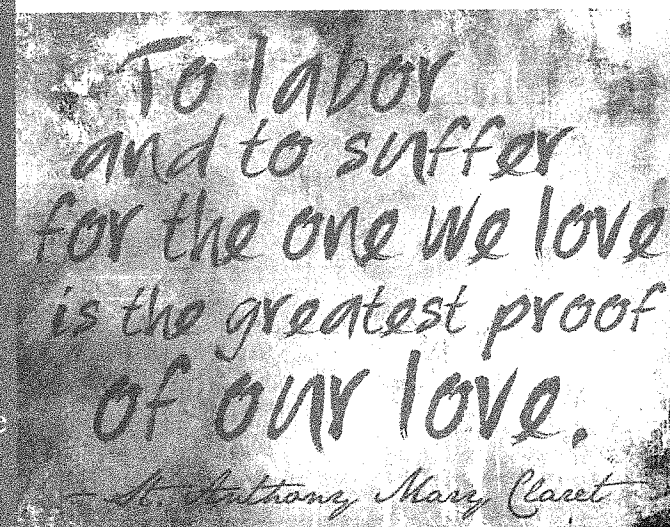 To labor
and to suffer
for the one we love
is the greatest proof
of our love.
- St. Anthony Mary Claret
e